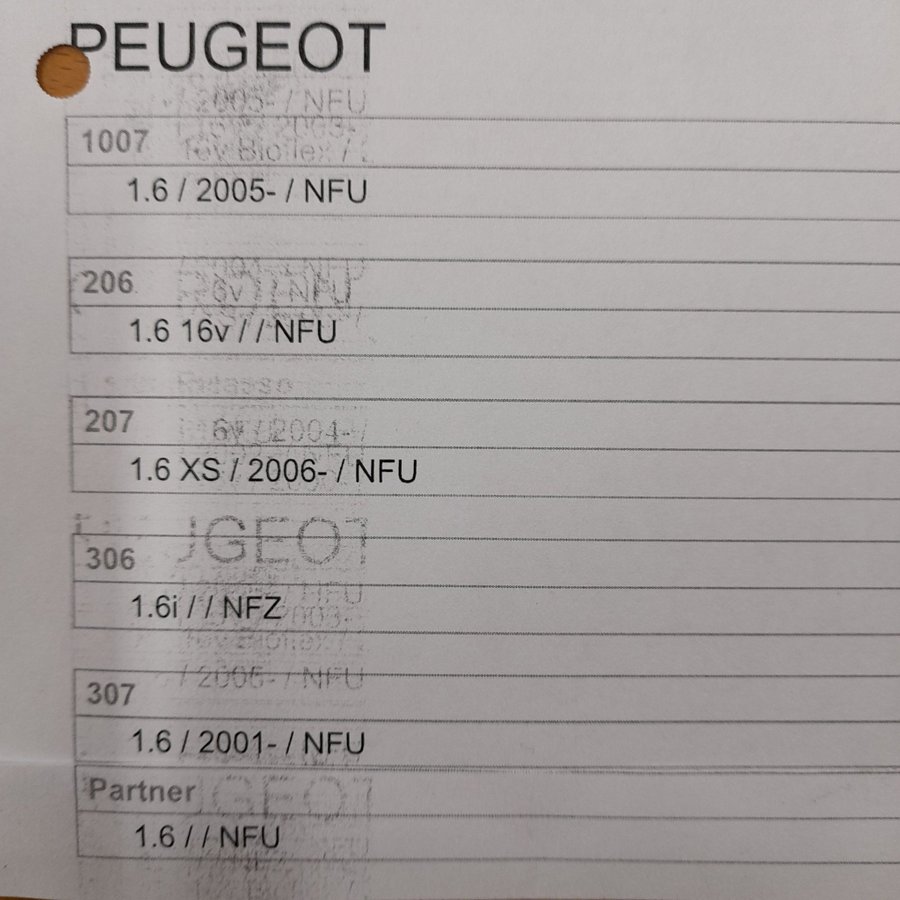 PEUGEOT
1007
1.6 / 2005- / NFU
206
1.6 16v / / NFU
207
1.6 XS / 2006- / NFU
306
1.6i / / NFZ
307
1.6 / 2001- / NFU
Partner
1.6 / / NFU